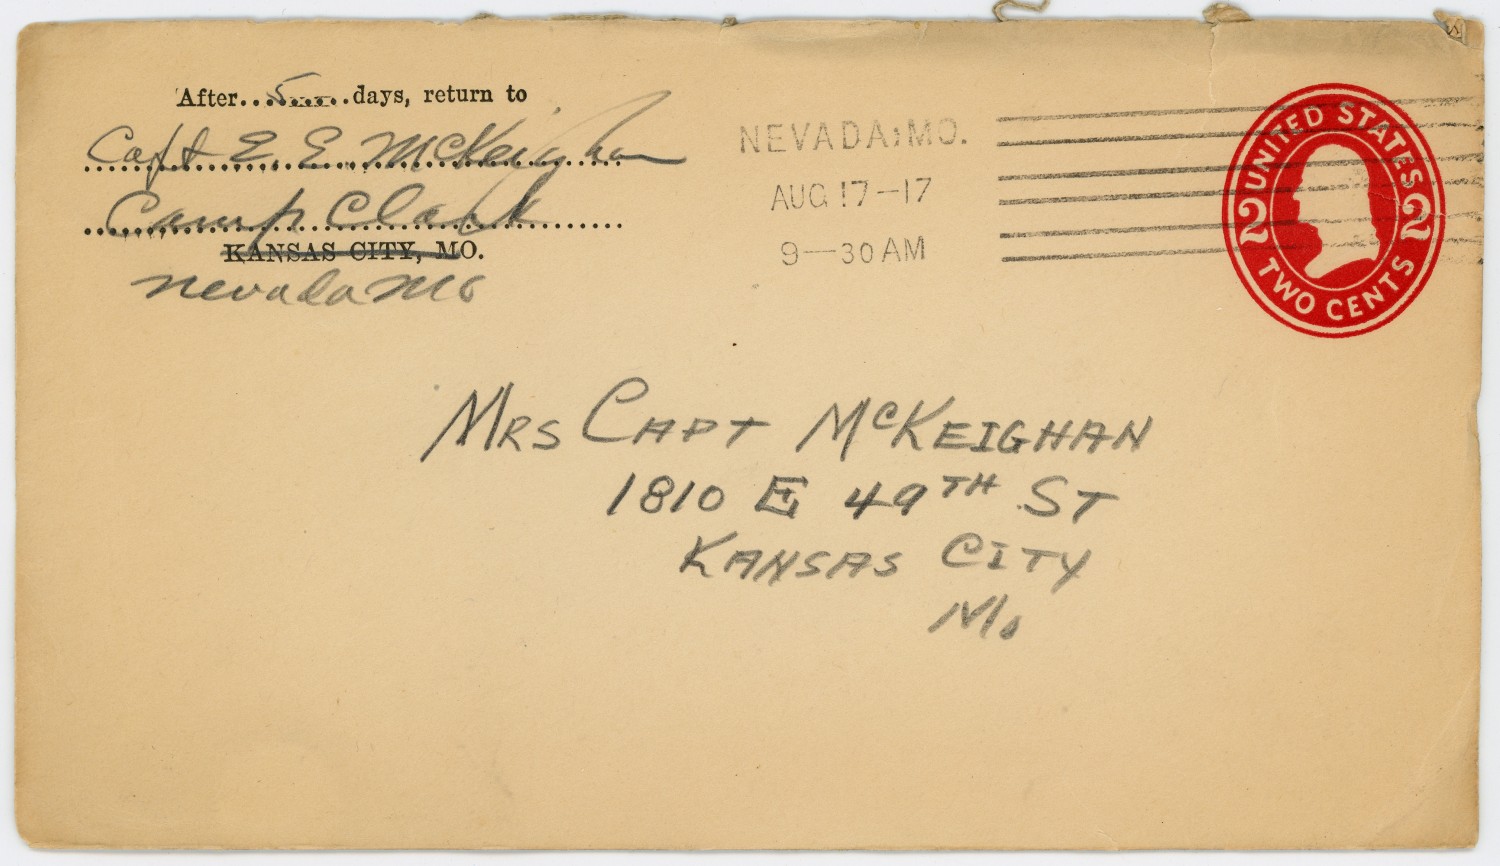 After....5....days, return to
Capt E. E. McKeighan
Camp Clark
KANSAS CITY, MO.
Nevada Mo
NEVADA, MO.
AUG 17-17
9-30 AM
UNITED STATES
2 2
TWO CENTS
MRS CAPT McKEIGHAN
1810 E 49TH ST
KANSAS CITY
Mo